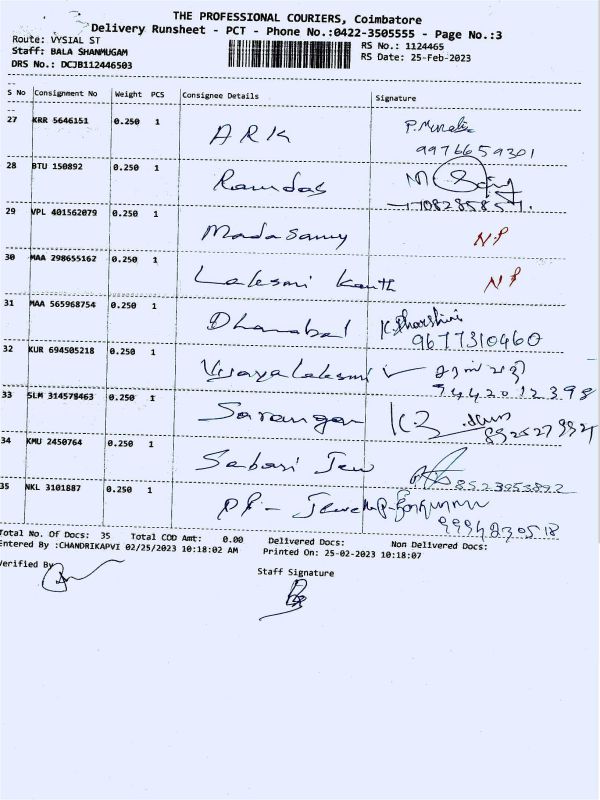 THE PROFESSIONAL COURIERS, Coimbatore
Delivery Runsheet - PCT - Phone No.:0422-3505555 - Page No.:3
Route: VYSIAL ST
Staff: BALA SHANMUGAM
DRS No.: DCJB112446503
RS No.: 1124465
RS Date: 25-Feb-2023
S No Consignment No Weight PCS Consignee Details Signature
27 KRR 5646151 0.250 1 ARK
9976659301
28 BTU 150892 0.250 1 Ramdas
29 VPL 401562079 0.250 1 Madasamy NP
30 MAA 298655162 0.250 1 Laksmi Kanth NP
31 MAA 565968754 0.250 1 Dhanabal K. Dharshini
9677310460
32 KUR 694505218 0.250 1 Vijayalaksmi
9442012398
33 SLM 314578463 0.250 1 Sarangan
34 KMU 2450764 0.250 1 Sabari Jew 8523953892
35 NKL 3101887 0.250 1
9994230518
Total No. Of Docs: 35 Total COD Amt: 0.00 Delivered Docs: Non Delivered Docs:
Entered By :CHANDRIKAPVI 02/25/2023 10:18:02 AM Printed On: 25-02-2023 10:18:07
Verified By
Staff Signature